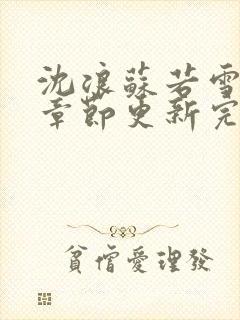 沈浪蘇若雪
章節更新完
貧僧愛理發